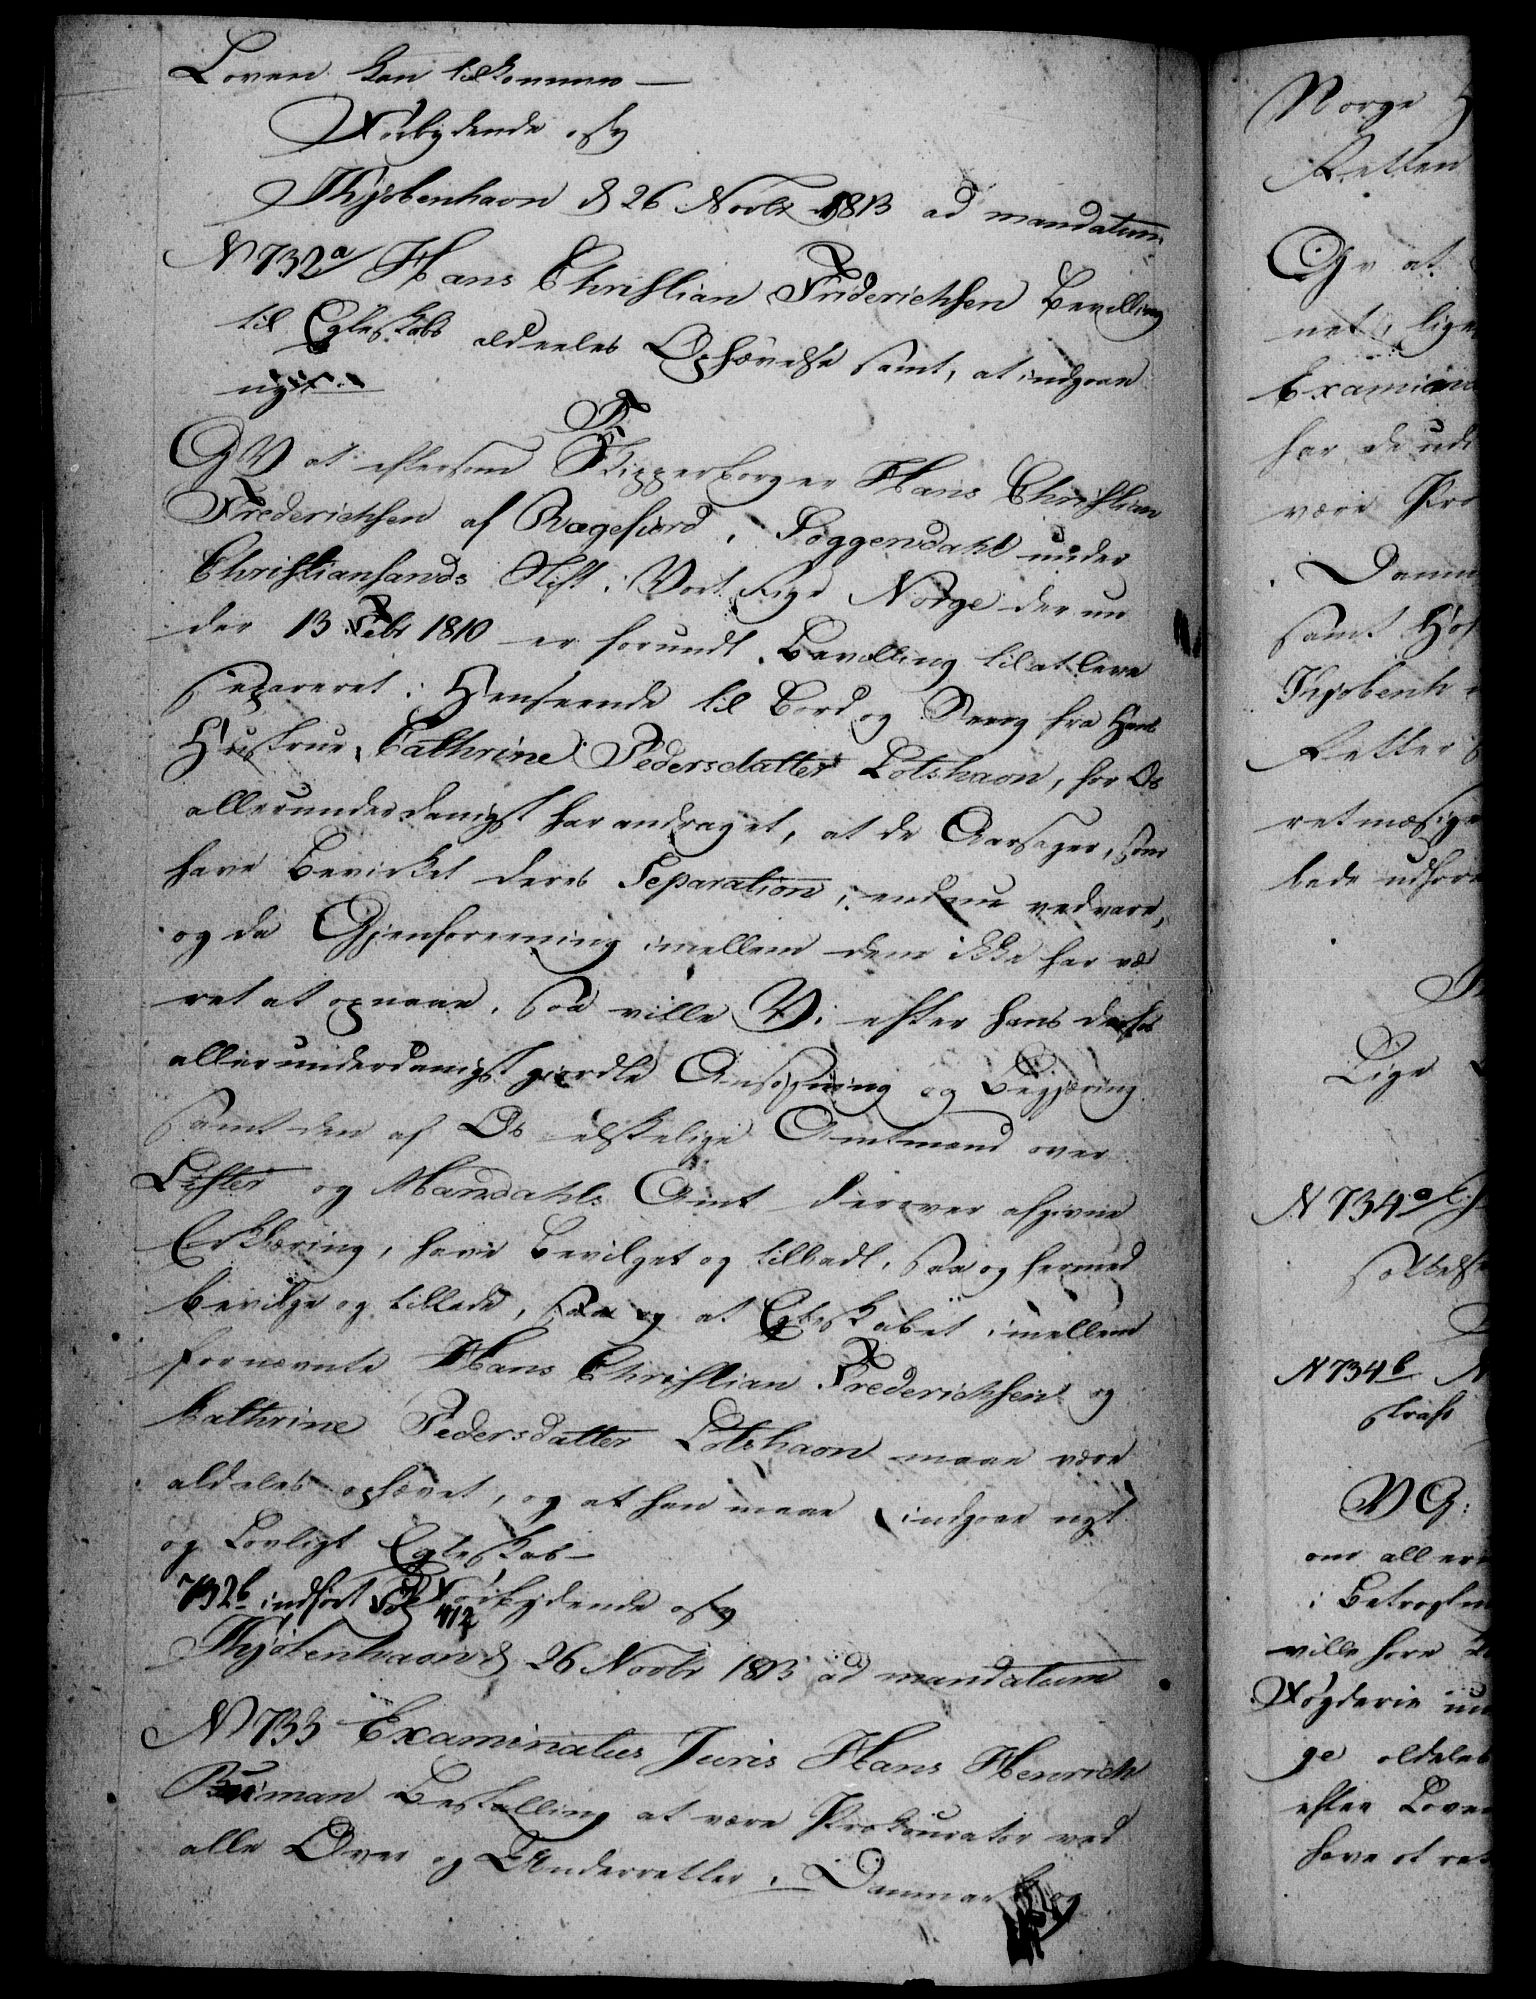 Loven kan tilkomme —
Forbydende osv
Kjøbenhavn d 26 Novbr 1813 ad mandatum
N 732a/ Hans Christian Friderichsen Bevilling
til Egteskabs aldeeles Ophævelse samt, at indgaae
nyt
GV at eftersom Skipperborger Hans Christian
Frederichsen af Rægefiord, Soggendahl under
Christiansands Stift i Vort Rige Norge der un
der 13 Febr 1810 er forundt Bevilling til at leve
separeret i Henseende til Bord og Seng fra Hans
Hustrue, Cathrine Pedersdatter Lotshavn, for Os
allerunderdanigst har andraget, at de Aarsager, som
have bevirket deres Separation, endnu vedvare,
og da Gjenforeening imellem dem ikke har væ
ret at opnaae, saa ville Vi efter hans derfor
allerunderdanigst giordte Ansøgning og Begjæring
samt den af Os elskelige Amtmand over
Lister og Mandahls Amt derover afgivne
Erklæring, have bevilget og tilladt, saa og hermed
bevilge og tillade, saa og at Egteskabet imellem
fornævnte Hans Christian Frederichsen og
Kathrine Pedersdatter Lotshavn maae være
aldeles ophævet, og at han maae indgaae nyt
og Lovligt Egteskab —
732b indført Fol 412 Forbydende osv
Kjøbenhavn d 26 Novbr 1813 ad mandatum
N 733 Examinatus Juris Hans Henrich
Bestalling at være Prokurator ved
alle Over og Underretter i Danmark og
Norge
Retten
GV at
net, lige
Examina
har de ud
være Pro
Danm
samt Høi
Kjøbenh
Retter
retmæsige
bede udføre
Lige
N 734a
N 734b
straf
VG:
om aller
i Betragtn
ville have
Fogderie un
ge aldeles
efter Loven
have at ret